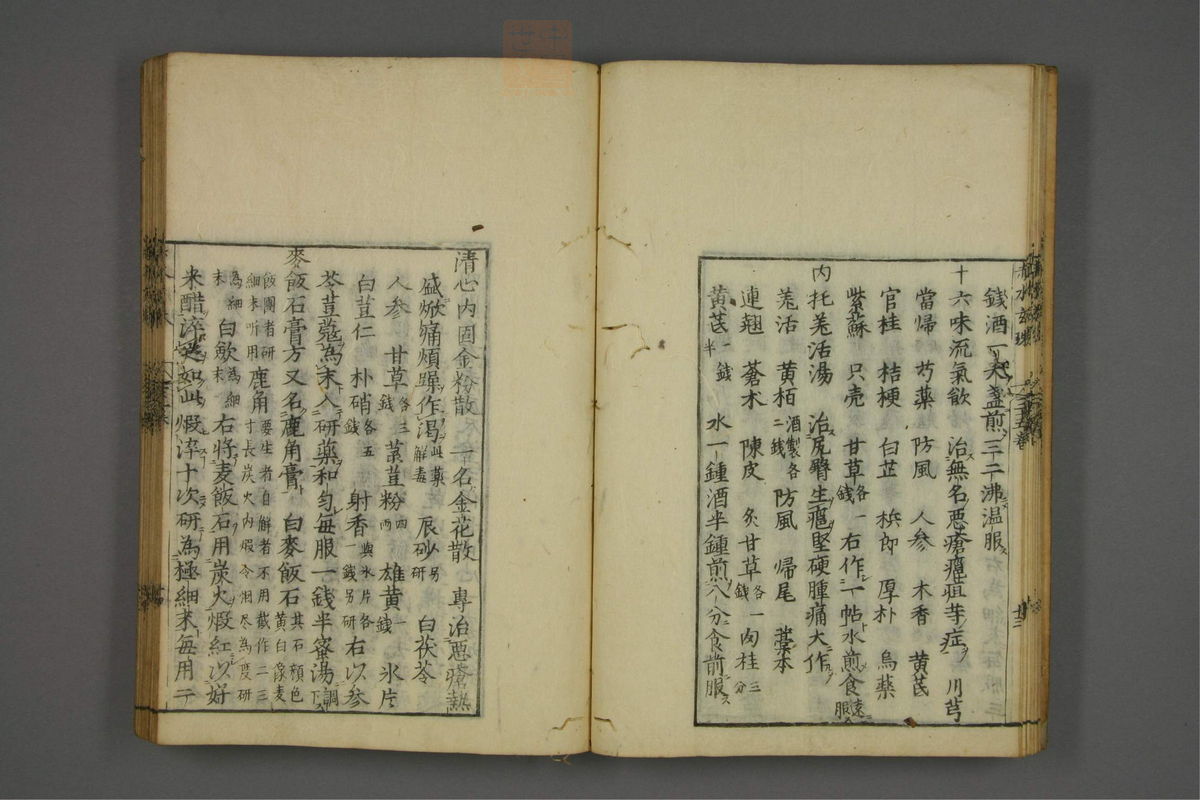 錢酒一大盞煎三二沸温服
十六味流氣飲 治無名悪瘡癰疽等症 川芎
當歸 芍薬 防風 人参 木香 黄芪
官桂 桔梗 白芷 梹郎 厚朴 烏薬
紫蘇 只壳 甘草各一錢 右作一帖水煎食遠服
内托羗活湯 治尻臀生癰堅硬腫痛大作
羗活 黄栢酒製各二錢 防風 歸尾 藁本
連翹 蒼术 陳皮 炙甘草各一錢 肉桂三分
黄芪一錢半 水一鍾酒半鍾煎八分食前服
清心内固金粉散 一名金花散 專治悪瘡熱
盛焮痛煩躁作渴此薬解毒 辰砂另研 白茯苓
人参 甘草各三錢 菉荳粉四兩 雄黄一錢 氷片
白荳仁 朴硝各五錢 射香與氷片各一錢另研 右以参
苓荳蔻為末入研薬和匀毎服一錢半蜜湯調下
麥飯石膏方又名鹿角膏 白麥飯石其石顔色黄白像麦
飯團者研細末听用 鹿角要生者自解者不用截作二三寸長炭火内煆令烟尽為度研
為細末 白蘞為細末 右將麦飯石用炭火煆紅以好
米醋淬之如此煆淬十次研為極細末毎用二